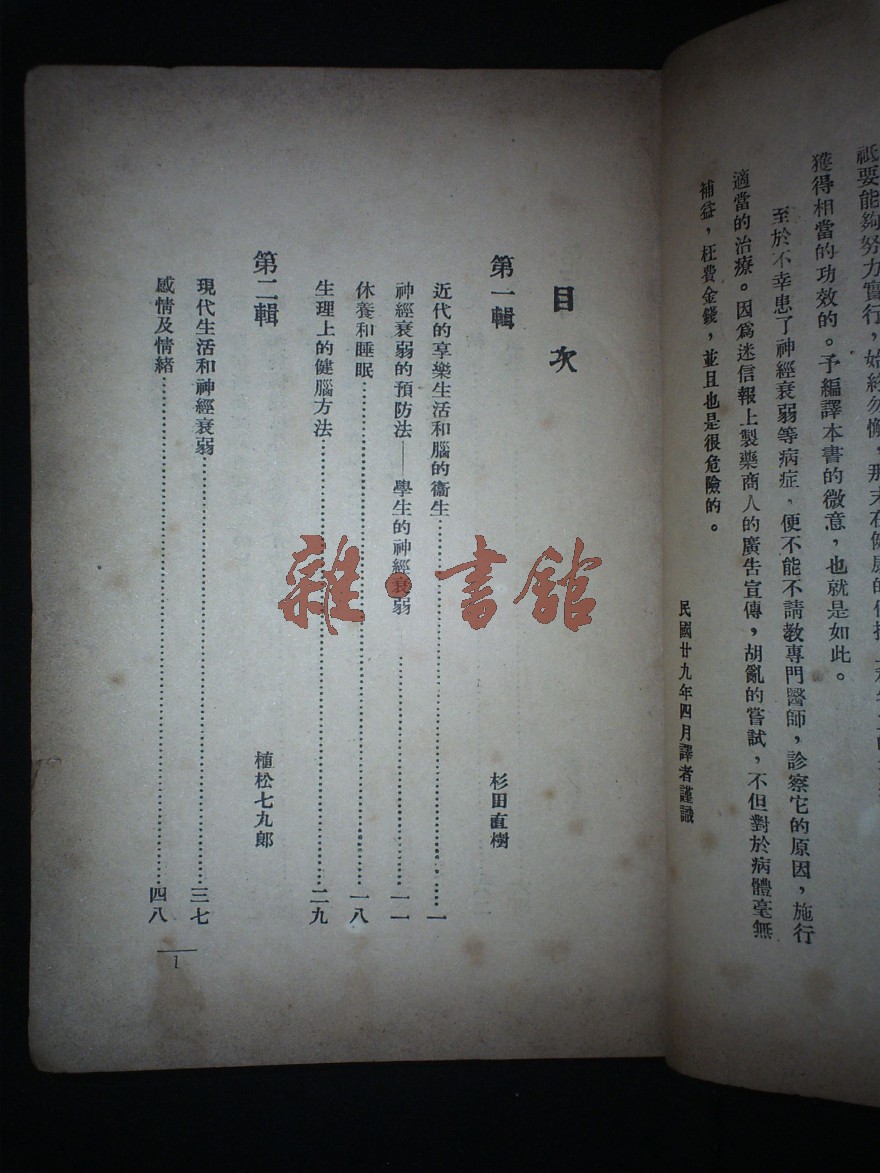 祇要能夠努力實行，始終勿懈，那末在健康的
獲得相當的功效的。予編譯本書的微意，也就是如此。
至於不幸患了神經衰弱等病症，便不能不請教專門醫師，診察它的原因，施行
適當的治療。因爲迷信報上製藥商人的廣告宣傳，胡亂的嘗試，不但對於病體毫無
補益，枉費金錢，並且也是很危險的。
民國廿九年四月譯者謹識
目次
第一輯 杉田直樹
近代的享樂生活和腦的衞生……一
神經衰弱的預防法——學生的神經衰弱……一一
休養和睡眠……一八
生理上的健腦方法……二九
第二輯 植松七九郎
現代生活和神經衰弱……三七
感情及情緒……四八
1
雜·書館